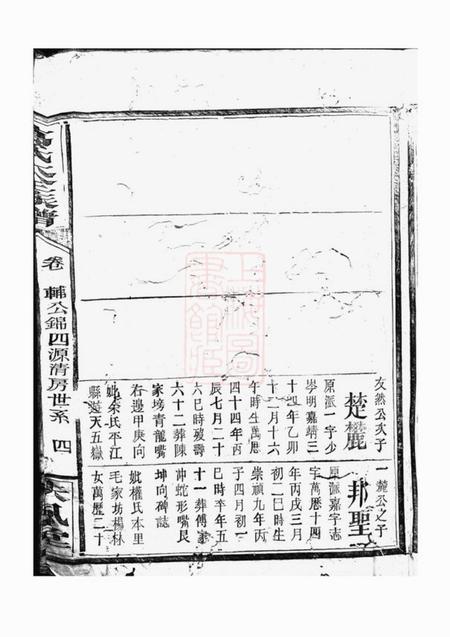 友然公次子
楚麓
原派一字少
岑明嘉靖三
十四年乙卯
十二月十六
午時生萬歷
四十四年丙
辰七月二十
六巳時歿壽
六十二葬陳
家塝青龍嘴
右邊甲庚向
妣余氏平江
縣遊天五嶽
一麓公之子
邦聖
原派嘉字志
字萬歷十四
年丙戌三月
初二巳時生
崇禎九年丙
子四月初一
巳時卒年五
十一葬傅家
沖蛇形嘴艮
坤向碑誌
妣權氏本里
毛家坊楊林
女萬歷二十
族譜
卷
輔公錦四源清房世系
四